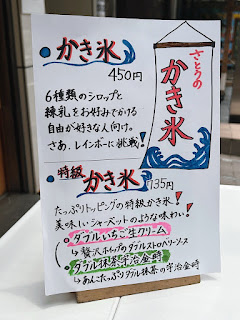 かき氷
450円
6種類のシロップと
練乳をお好みでかける
自由が好きな人向け。
さあ、レインボーに挑戦!
さとうの
かき氷
特級
かき氷
735円
たっぷりトッピングの特級かき氷!
美味しいシャーベットのような味わい!
ダブルいちご生クリーム
↳贅沢ホイップのダブルストロベリーソース
ダブル抹茶宇治金時
↳あんこたっぷりダブル抹茶の宇治金時